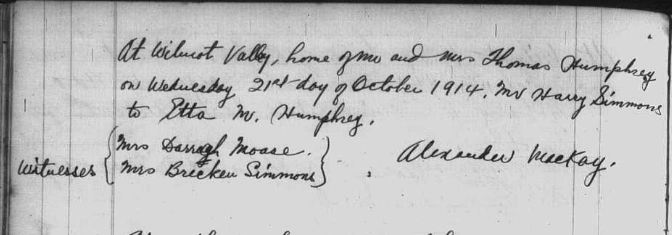 At Wilmot Valley, home of Mr and Mrs Thomas Humphrey
on Wednesday 21st day of October 1914, Mr Harry Simmons
to Etta M. Humphrey.
Witnesses { Mrs Darragh Moase.
Mrs Brecken Simmons } . Alexander MacKay.